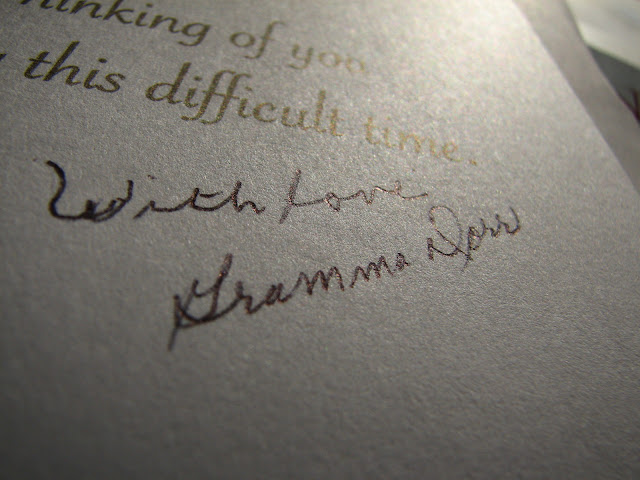 hinking of you
this difficult time.
With Love
Gramma Dorr